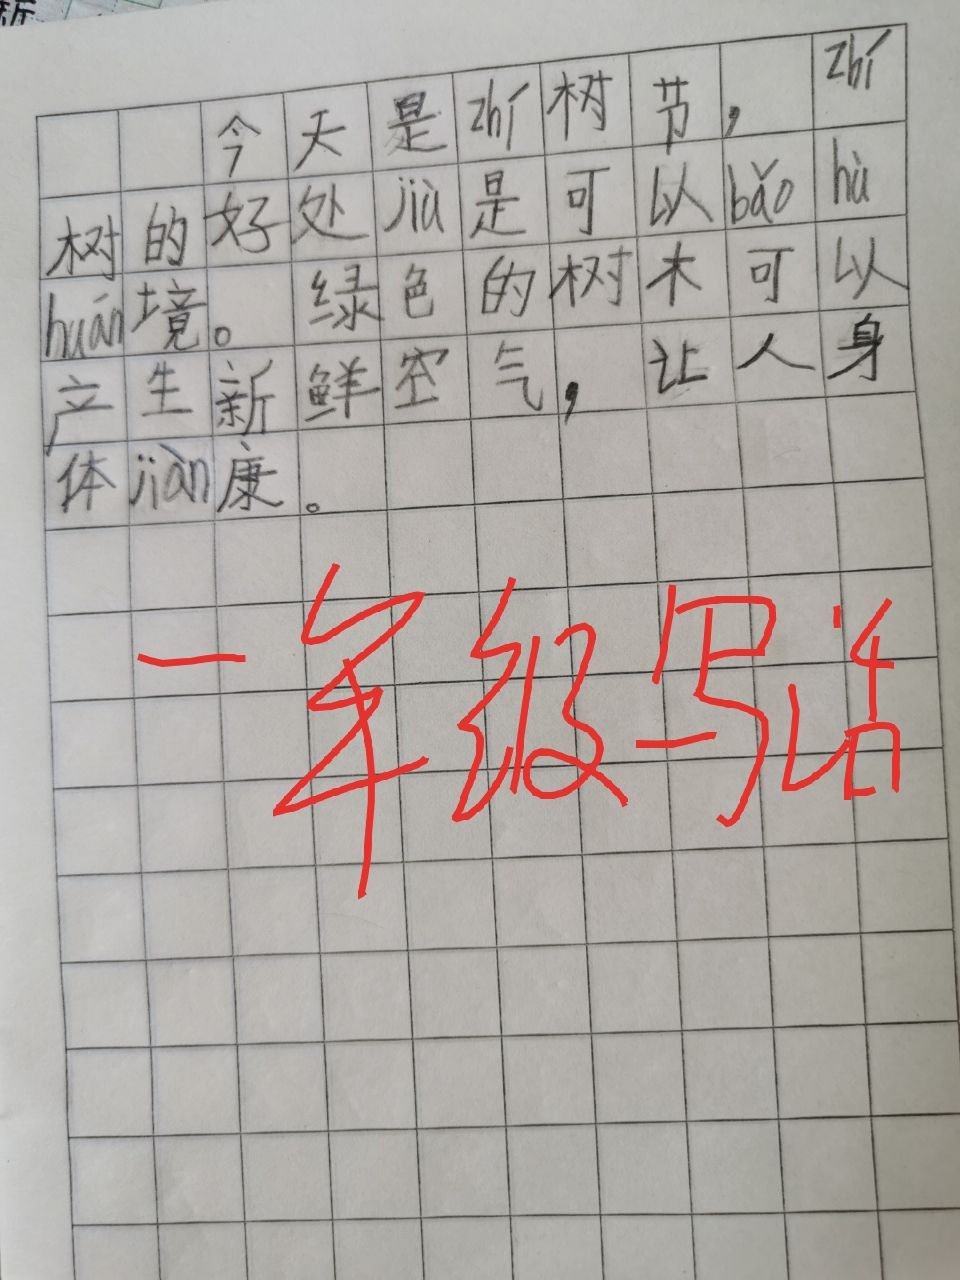 新
今天是zhí树节，zhí
树的好处jiù是可以bǎohù
huán境。绿色的树木可以
产生新鲜空气，让人身
体jiàn康。
一年级写话